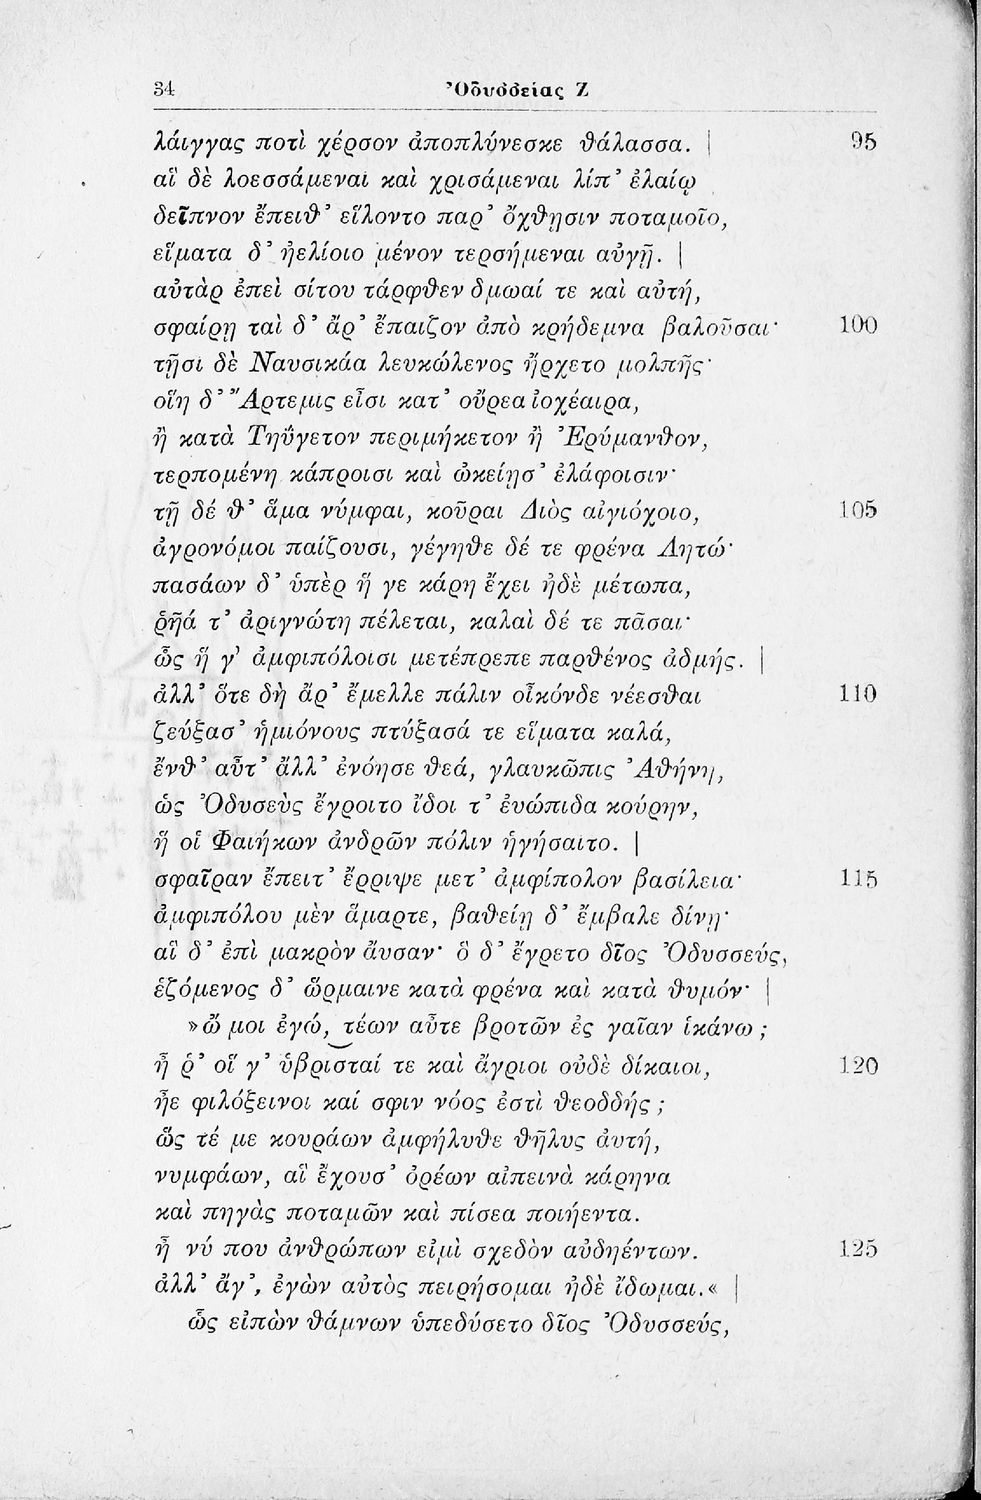 34 Ὀδυσσείας Ζ
λάιγγας ποτὶ χέρσον ἀποπλύνεσκε θάλασσα. | 95
αἳ δὲ λοεσσάμεναι καὶ χρισάμεναι λίπ’ ἐλαίῳ
δεῖπνον ἔπειθ’ εἵλοντο παρ’ ὄχθῃσιν ποταμοῖο,
εἵματα δ’ ἠελίοιο μένον τερσήμεναι αὐγῇ. |
αὐτὰρ ἐπεὶ σίτου τάρφθεν δμωαί τε καὶ αὐτή,
σφαίρῃ ταὶ δ’ ἄρ’ ἔπαιζον ἀπὸ κρήδεμνα βαλοῦσαι· 100
τῇσι δὲ Ναυσικάα λευκώλενος ἤρχετο μολπῆς·
οἵη δ’ Ἄρτεμις εἶσι κατ’ οὔρεα ἰοχέαιρα,
ἢ κατὰ Τηΰγετον περιμήκετον ἢ Ἐρύμανθον,
τερπομένη κάπροισι καὶ ὠκείῃσ’ ἐλάφοισιν·
τῇ δέ θ’ ἅμα νύμφαι, κοῦραι Διὸς αἰγιόχοιο, 105
ἀγρονόμοι παίζουσι, γέγηθε δέ τε φρένα Λητώ·
πασάων δ’ ὑπὲρ ἥ γε κάρη ἔχει ἠδὲ μέτωπα,
ῥῆά τ’ ἀριγνώτη πέλεται, καλαὶ δέ τε πᾶσαι·
ὣς ἥ γ’ ἀμφιπόλοισι μετέπρεπε παρθένος ἀδμής. |
ἀλλ’ ὅτε δὴ ἄρ’ ἔμελλε πάλιν οἶκόνδε νέεσθαι 110
ζεύξασ’ ἡμιόνους πτύξασά τε εἵματα καλά,
ἔνθ’ αὖτ’ ἄλλ’ ἐνόησε θεά, γλαυκῶπις Ἀθήνη,
ὡς Ὀδυσεὺς ἔγροιτο ἴδοι τ’ ἐυώπιδα κούρην,
ἥ οἱ Φαιήκων ἀνδρῶν πόλιν ἡγήσαιτο. |
σφαῖραν ἔπειτ’ ἔρριψε μετ’ ἀμφίπολον βασίλεια· 115
ἀμφιπόλου μὲν ἅμαρτε, βαθείῃ δ’ ἔμβαλε δίνῃ·
αἳ δ’ ἐπὶ μακρὸν ἄυσαν· ὃ δ’ ἔγρετο δῖος Ὀδυσσεύς,
ἑζόμενος δ’ ὥρμαινε κατὰ φρένα καὶ κατὰ θυμόν· |
»ὤ μοι ἐγώ, τέων αὖτε βροτῶν ἐς γαῖαν ἱκάνω;
ἦ ῥ’ οἵ γ’ ὑβρισταί τε καὶ ἄγριοι οὐδὲ δίκαιοι, 120
ἦε φιλόξεινοι καί σφιν νόος ἐστὶ θεουδής;
ὥς τέ με κουράων ἀμφήλυθε θῆλυς ἀυτή,
νυμφάων, αἳ ἔχουσ’ ὀρέων αἰπεινὰ κάρηνα
καὶ πηγὰς ποταμῶν καὶ πίσεα ποιήεντα.
ἦ νύ που ἀνθρώπων εἰμὶ σχεδὸν αὐδηέντων. 125
ἀλλ’ ἄγ’, ἐγὼν αὐτὸς πειρήσομαι ἠδὲ ἴδωμαι.« |
ὣς εἰπὼν θάμνων ὑπεδύσετο δῖος Ὀδυσσεύς,